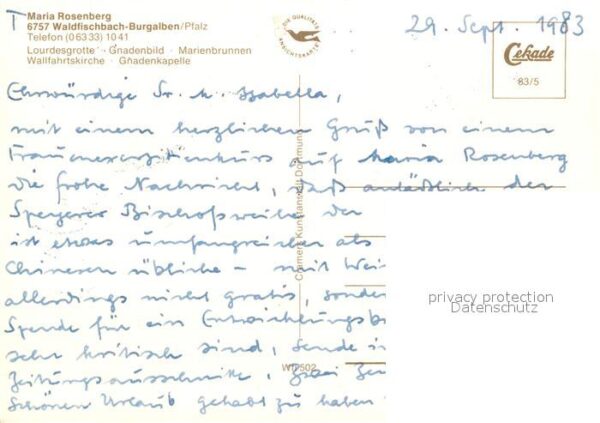 Maria Rosenberg
6757 Waldfischbach-Burgalben/Pfalz
Telefon (06333) 1041
Lourdesgrotte · Gnadenbild · Marienbrunnen
Wallfahrtskirche · Gnadenkapelle
DIE QUALITÄTS
ANSICHTSKARTE
29. Sept. 1983
Cekade
83/5
Ehrwürdige Sr. M. Isabella,
mit einem herzlichen Gruß von einem
Frauenexerzitienkurs auf Maria Rosenberg
die frohe Nachricht, daß anläßlich der
Speyerer Bischofsweihe der
ist etwas umfangreicher als
Chinesen übliche – mit Wei
allerdings nicht gratis, sonder
Spende für ein Entwicklungsp
sehr kritisch sind, sende i
Zeitungsausschnitte. Zwei
Schönen Urlaub gehabt zu haben
Cramers Kunstanstalt Dortmund
Wf 502
privacy protection
Datenschutz